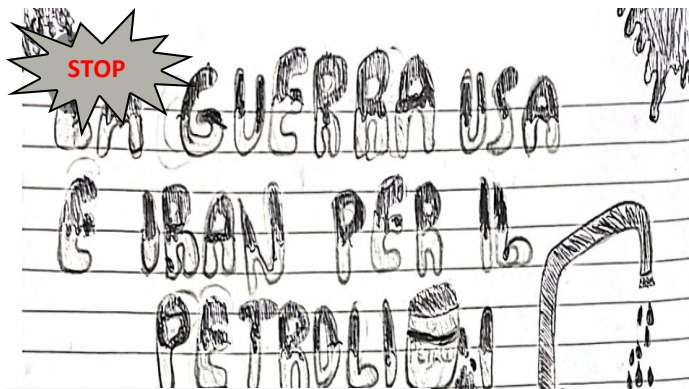 STOP
LA GUERRA USA
E IRAN PER IL
PETROLIO